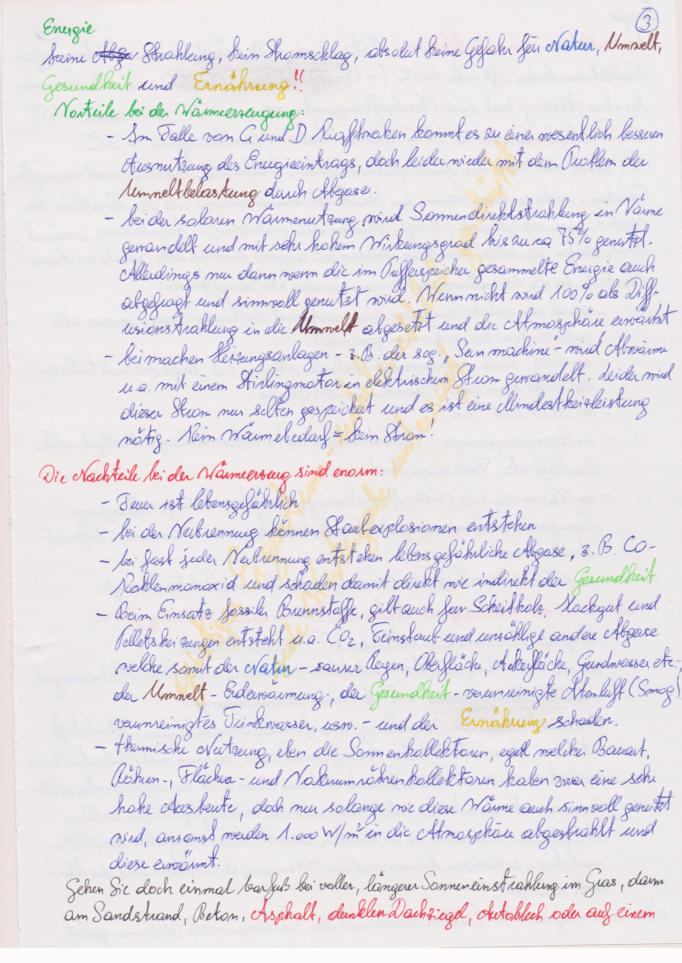 3
Energie
keine Strahlung, kein Stromschlag, absolut keine Gefahr für Natur, Umwelt,
Gesundheit und Ernährung!!
Vorteile bei der Wärmeerzeugung:
- Im Falle von G und D Kraftwerken kommt es zu einer wesentlich besseren
Ausnutzung des Energieeintrags, doch leider wieder mit dem Problem der
Umweltbelastung durch Abgase.
- bei der solaren Wärmenutzung wird Sonnendirektstrahlung in Wärme
gewandelt und mit sehr hohem Wirkungsgrad bis zu ca 75% genutzt.
Allerdings nur dann wenn die im Pufferspeicher gesammelte Energie auch
abgefragt und sinnvoll genutzt wird. Wenn nicht wird 100% als Diff-
usionsstrahlung in die Umwelt abgesetzt und die Atmosphäre erwärmt
- bei machen Heizungsanlagen - z.B. der sog. "Sun machine" - wird Abwärme
u.a. mit einem Stirlingmotor in elektrischen Strom gewandelt. Leider wird
dieser Strom nur selten gespeichert und es ist eine Mindestheizleistung
nötig - Kein Wärmebedarf = kein Strom!
Die Nachteile bei der Wärmeerzeug sind enorm:
- Feuer ist lebensgefährlich
- bei der Verbrennung können Staubexplosionen entstehen
- bei fast jeder Verbrennung entstehen lebensgefährliche Abgase, z.B. CO-
Kohlenmonoxid und schaden damit direkt wie indirekt der Gesundheit
- Beim Einsatz fossiler Brennstoffe, gilt auch für Scheitholz, Hackgut und
Pelletsheizungen entsteht u.a. CO2, Feinstaub und unzählige andere Abgase
welche somit der Natur - saurer Regen, Oberfläche, Ackerfläche, Grundwasser etc.,
der Umwelt - Erderwärmung-, der Gesundheit - verunreinigte Atemluft (Smog)
verunreinigtes Trinkwasser, usw. - und der Ernährung schaden.
- thermische Nutzung, eben die Sonnenkollektoren, egal welcher Bauart,
Röhren-, Flächen- und Vakuumröhrenkollektoren haben zwar eine sehr
hohe Ausbeute, doch nur solange wie diese Wärme auch sinnvoll genutzt
wird, ansonst werden 1.000 W/m² in die Atmosphäre abgestrahlt und
diese erwärmt.
Gehen Sie doch einmal barfuß bei voller, längerer Sonneneinstrahlung im Gras, dann
am Sandstrand, Beton, Asphalt, dunklen Dachziegel, Autoblech oder auf einem